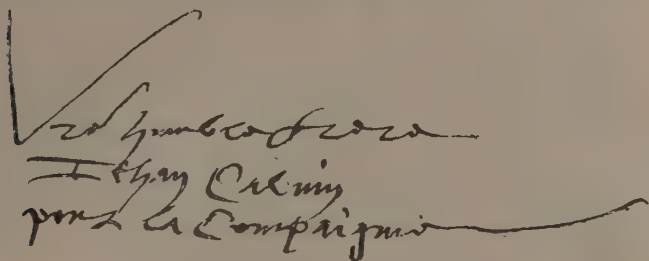 Vre humble frere
Jehan Calvin
pour la Compaignie